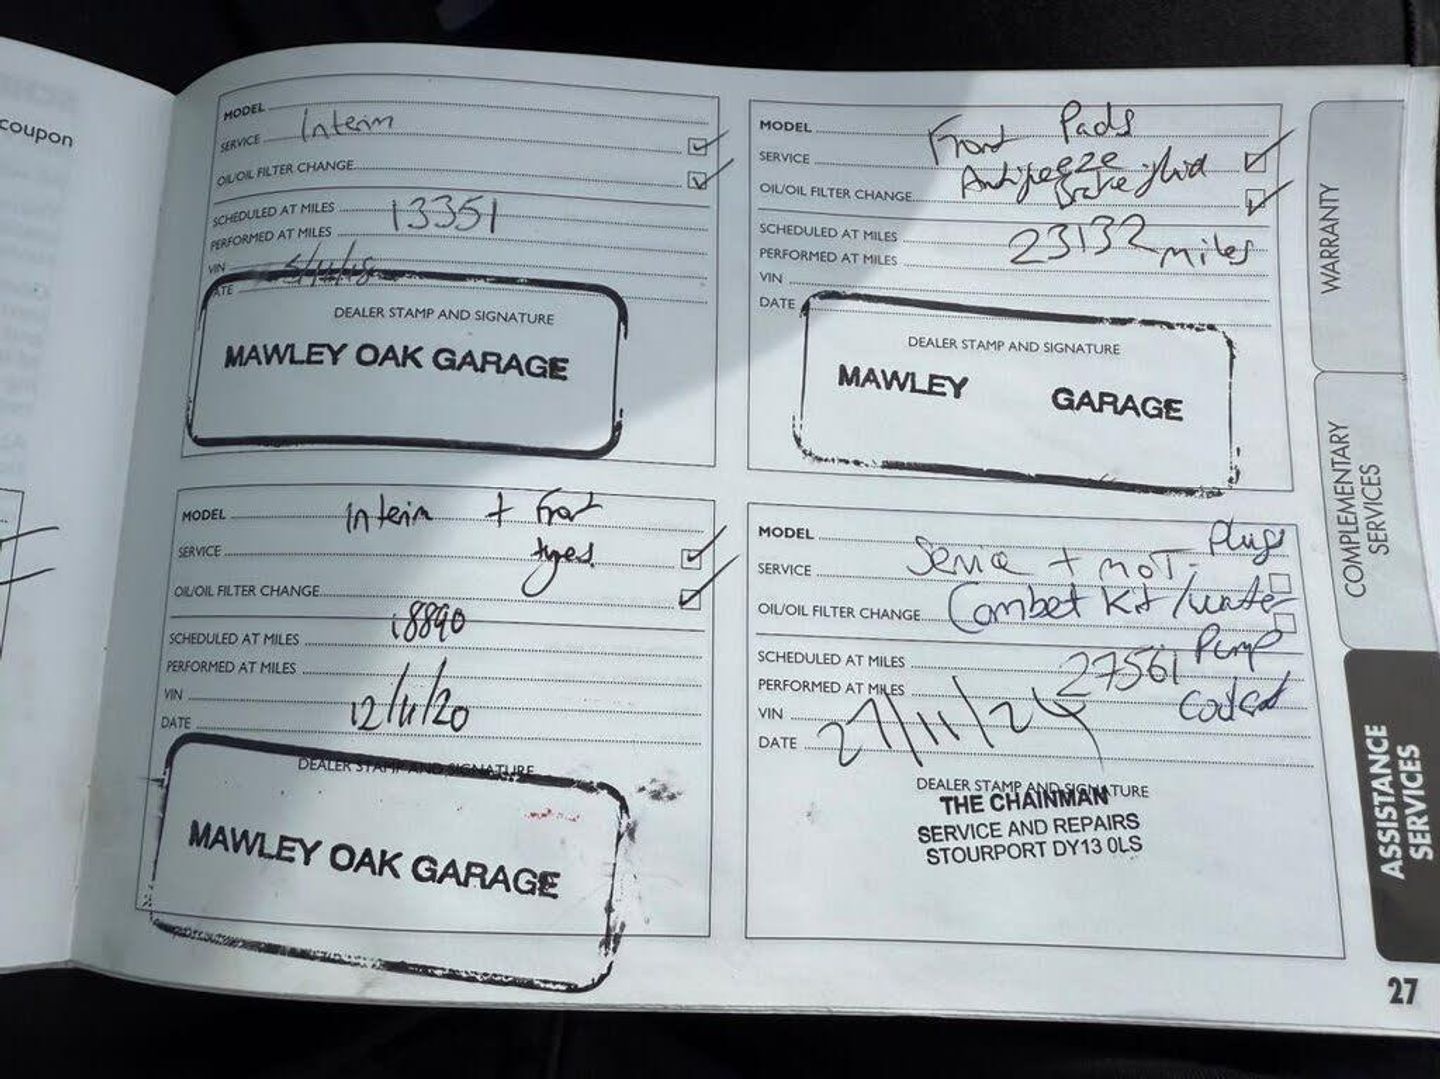 coupon
MODEL
SERVICE Interim
OIL/OIL FILTER CHANGE
SCHEDULED AT MILES 13351
PERFORMED AT MILES
VIN
DATE
DEALER STAMP AND SIGNATURE
MAWLEY OAK GARAGE
MODEL Front Pads
SERVICE Antifreeze
OIL/OIL FILTER CHANGE Brake fluid
SCHEDULED AT MILES 23132 miles
PERFORMED AT MILES
VIN
DATE
DEALER STAMP AND SIGNATURE
MAWLEY GARAGE
MODEL Interim + Front
SERVICE tyres
OIL/OIL FILTER CHANGE
SCHEDULED AT MILES 18890
PERFORMED AT MILES
VIN
DATE 12/11/20
DEALER STAMP AND SIGNATURE
MAWLEY OAK GARAGE
MODEL Plugs
SERVICE Service + MOT.
OIL/OIL FILTER CHANGE Cambelt Kit/water
SCHEDULED AT MILES 27561 Pump
PERFORMED AT MILES
VIN
DATE 27/11/24
DEALER STAMP AND SIGNATURE
THE CHAINMAN
SERVICE AND REPAIRS
STOURPORT DY13 0LS
WARRANTY
COMPLEMENTARY
SERVICES
ASSISTANCE
SERVICES
27